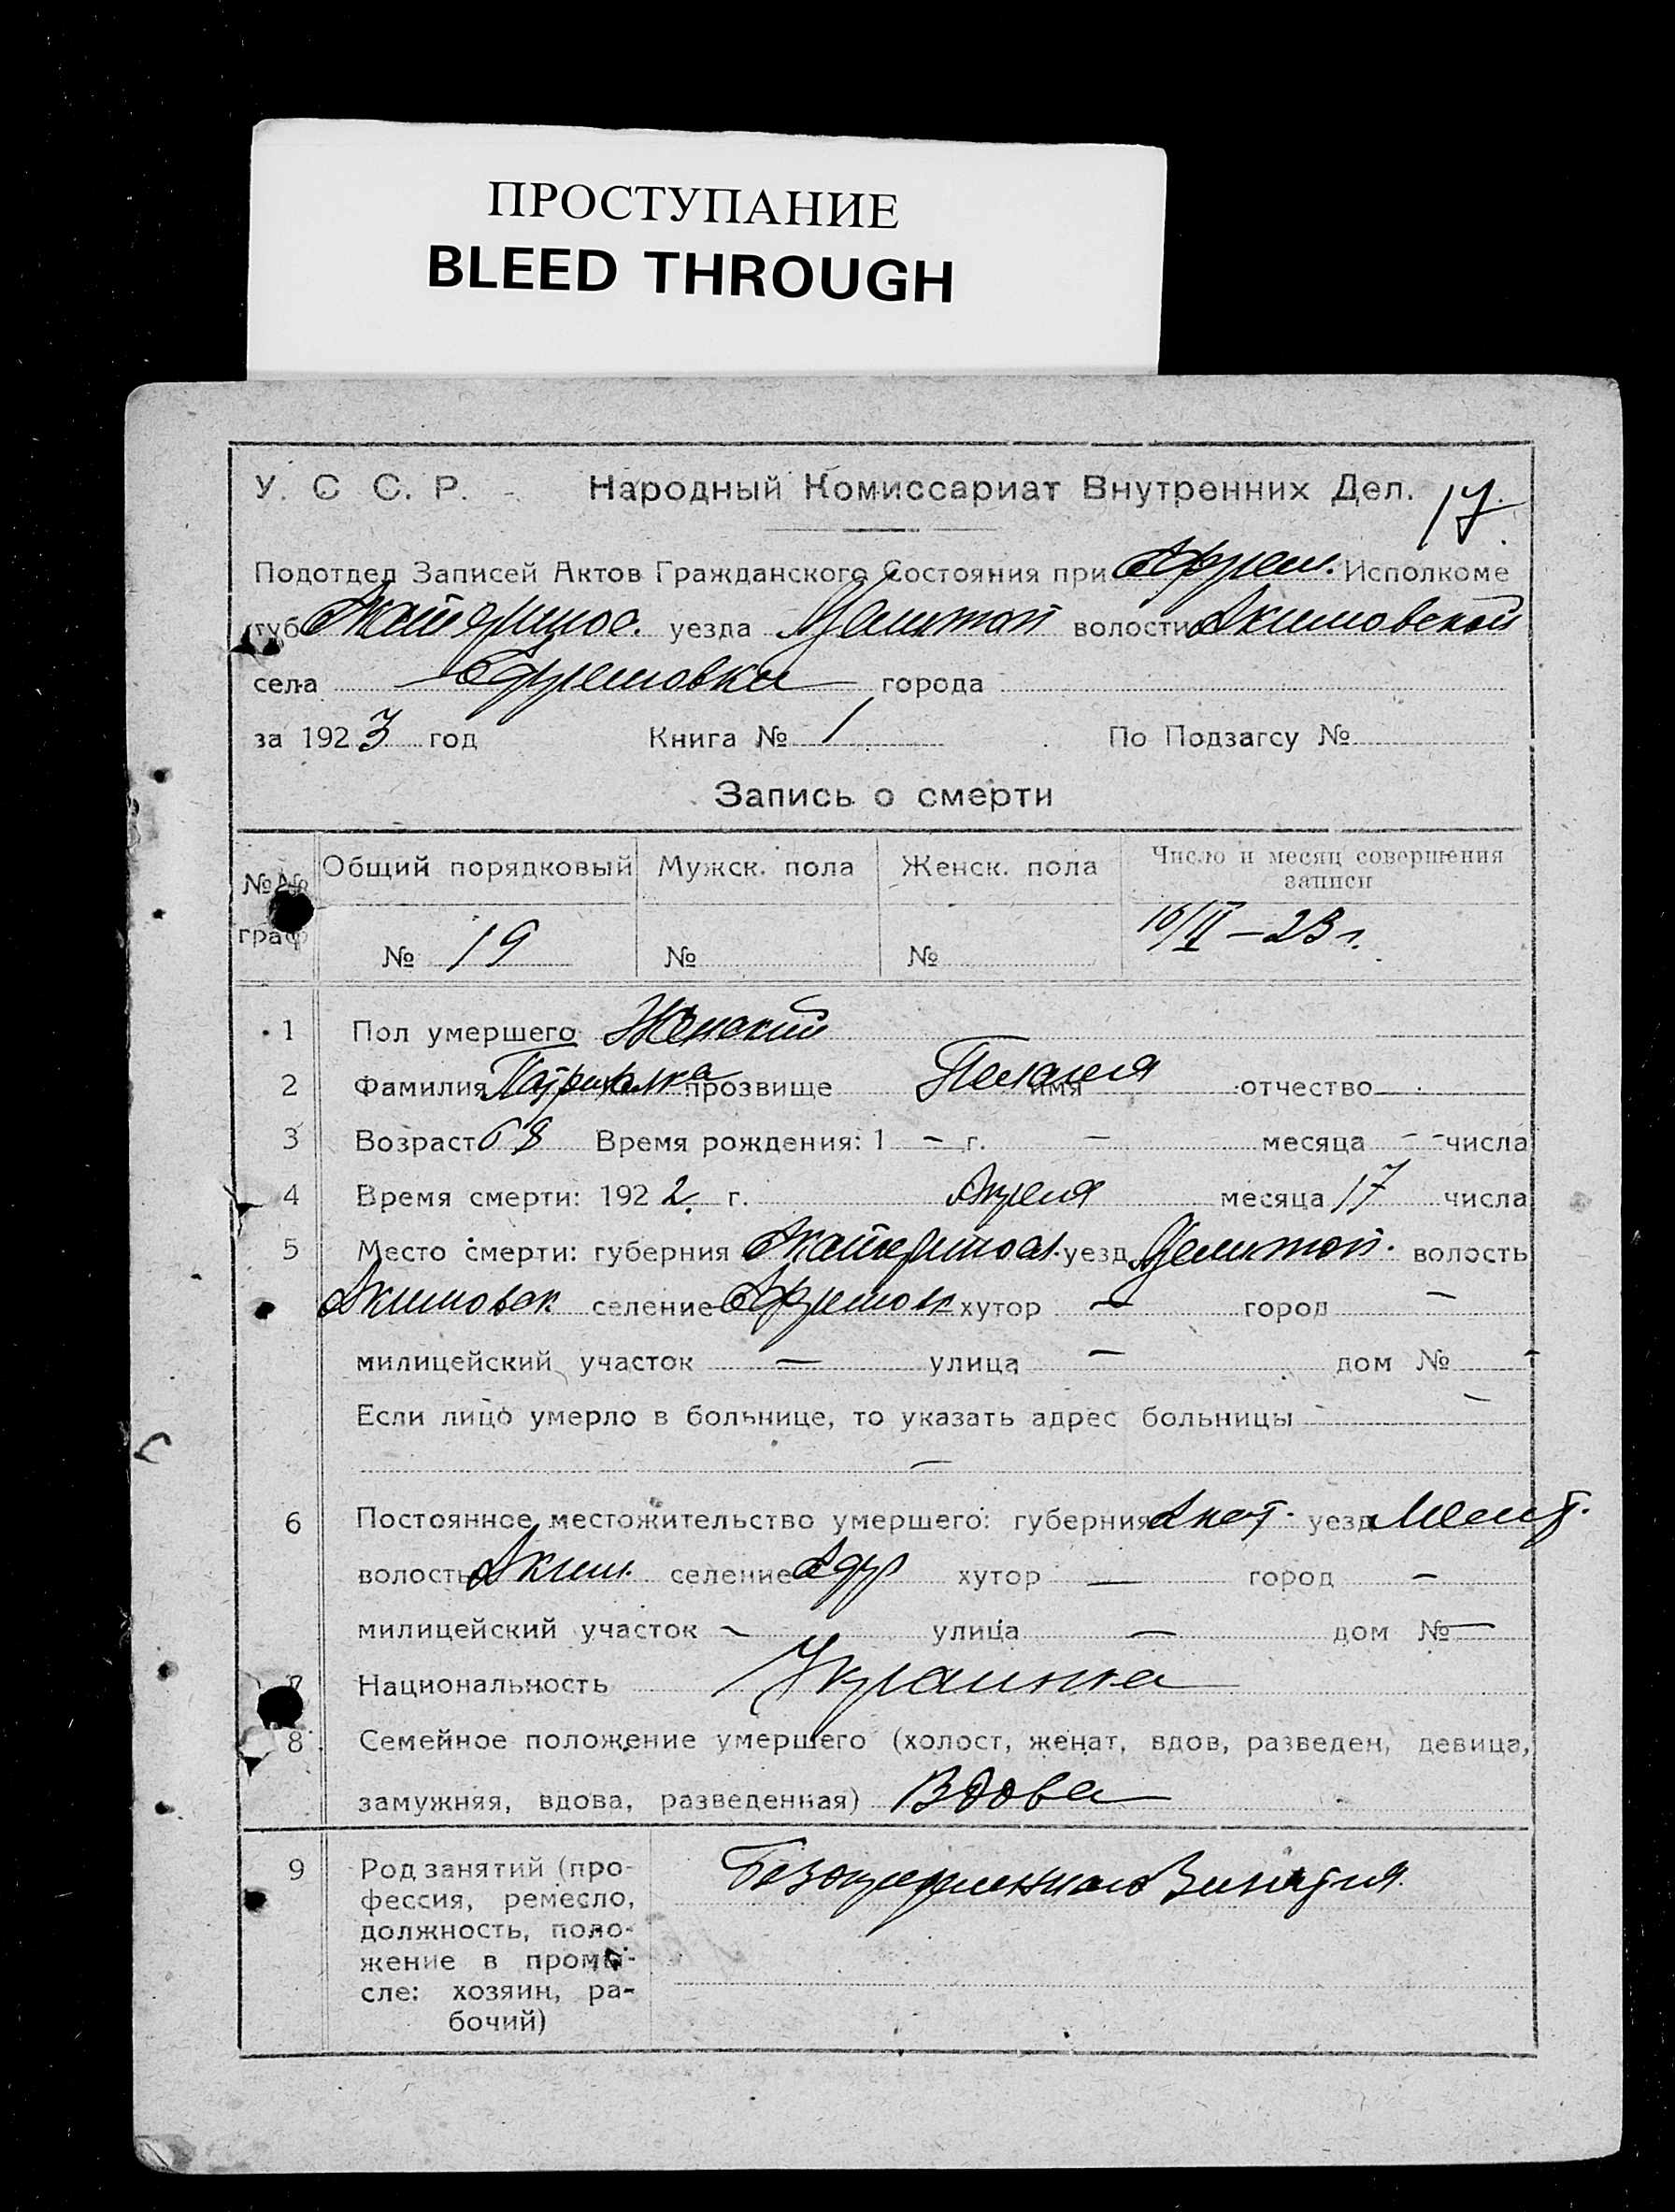 ПРОСТУПАНИЕ
BLEED THROUGH
У. С С. Р. - Народный Комиссариат Внутренних Дел. 17
Подотдел Записей Актов Гражданского Состояния при Исполкоме
губ уезда волости Акимовской
села города
за 1923 год Книга № 1 По Подзагсу №
Запись о смерти
№№ граф
Общий порядковый Мужск. пола Женск. пола Число и месяц совершения записи
№ 19 № № 16/II – 23 г.
1 Пол умершего Женский
2 Фамилия прозвище имя Пелагея отчество
3 Возраст 68 Время рождения: 1 – г. – месяца – – числа
4 Время смерти: 1922 г. Апреля месяца 17 числа
5 Место смерти: губерния уезд волость
Акимовск селение хутор — город —
милицейский участок — улица — дом № -
Если лицо умерло в больнице, то указать адрес больницы —
—
6 Постоянное местожительство умершего: губерния уезд Мелит.
волость Аким. селение хутор — город —
милицейский участок — улица — дом № —
7 Национальность Украинка
8 Семейное положение умершего (холост, женат, вдов, разведен, девица,
замужняя, вдова, разведенная) Вдова
9 Род занятий (про-
фессия, ремесло,
должность, поло-
жение в промы-
сле: хозяин, ра-
бочий)